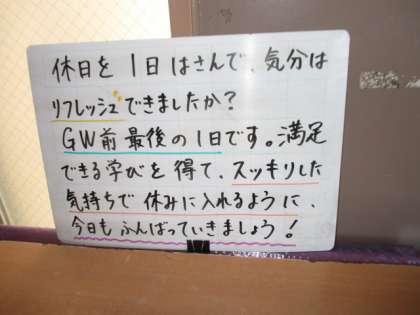 休日を1日はさんで、気分は
リフレッシュできましたか?
GW前最後の1日です。満足
できる学びを得て、スッキリした
気持ちで休みに入れるように、
今日もふんばっていきましょう!